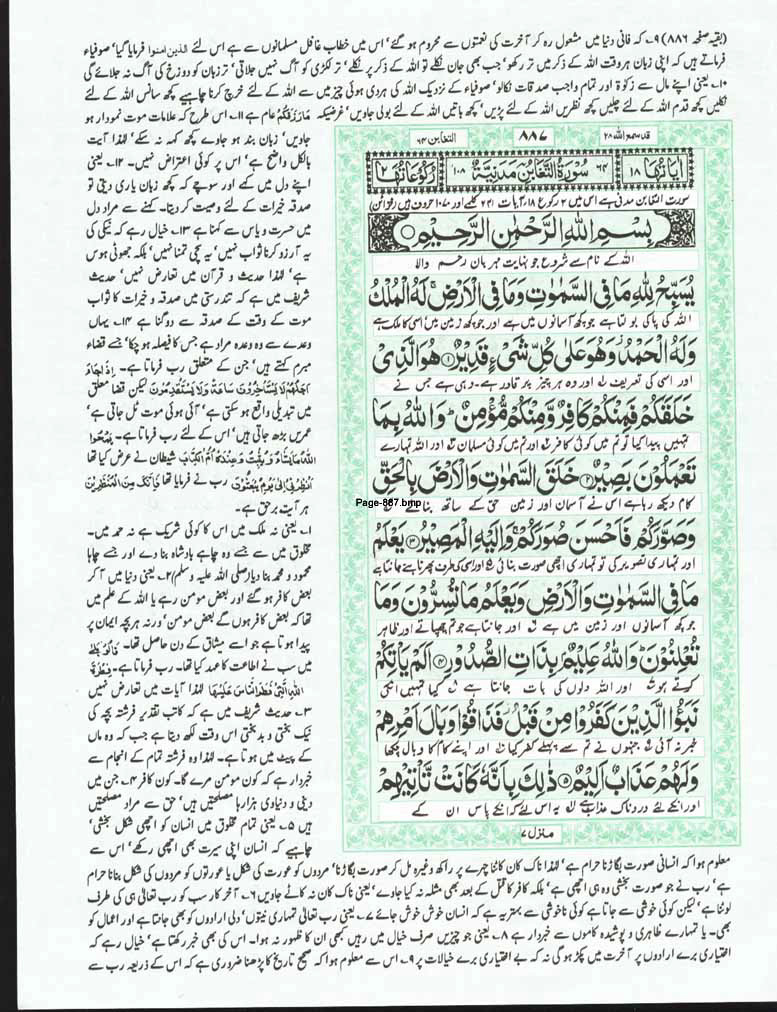 (بقیہ صفحہ ۸۸۶) ۹۔ کہ فانی دنیا میں مشغول رہ کر آخرت کی نعمتوں سے محروم ہو گئے' اس میں خطاب غافل مسلمانوں سے ہے اس لئے الذین امنوا فرمایا گیا' صوفیاء
فرماتے ہیں کہ اپنی زبان ہر وقت اللہ کے ذکر میں تر رکھو' جب بھی جان نکلے تو اللہ کے ذکر پر نکلے' تر لکڑی کو آگ نہیں جلاتی' تر زبان کو دوزخ کی آگ نہ جلائے گی
۱۰۔ یعنی اپنے مال سے زکوٰۃ اور تمام واجب صدقات نکالو' صوفیاء کے نزدیک اللہ کی ہر دی ہوئی چیز میں سے اللہ کے لئے خرچ کرنا چاہیے کچھ سانس اللہ کے لئے
نکلیں کچھ قدم اللہ کے لئے چلیں کچھ نظریں اللہ کے لئے پڑیں' کچھ باتیں اللہ کے لئے بولی جاویں' غرضیکہ مَا رَزَقْنٰكُمْ عام ہے ۱۱۔ اس طرح کہ علامات موت نمودار ہو
جاویں' زبان بند ہو جاوے کچھ کہہ نہ سکے' لہٰذا آیت
بالکل واضح ہے' اس پر کوئی اعتراض نہیں۔ ۱۲۔ یعنی
اپنے دل میں کہے اور سوچے کہ کچھ زبان یاری دیتی تو
صدقہ خیرات کے لئے وصیت کر دیتا۔ کہنے سے مراد دل
میں حسرت ویاس سے کہنا ہے ۱۳۔ خیال رہے کہ نیکی کی
یہ آرزو کرنا ثواب نہیں' یہ سچی تمنا نہیں' بلکہ جھوٹی ہوس
ہے' لہٰذا حدیث و قرآن میں تعارض نہیں' حدیث
شریف میں ہے کہ تندرستی میں صدقہ و خیرات کا ثواب
موت کے وقت کے صدقہ سے دوگنا ہے ۱۴۔ یہاں
وعدے سے وہ وعدہ مراد ہے جس کا فیصلہ ہو چکا' جسے قضاء
مبرم کہتے ہیں' جن کے متعلق رب فرماتا ہے۔ اِذَا جَآءَ
اَجَلُهُمْ لَا يَسْتَاْخِرُوْنَ سَاعَةً وَّلَا يَسْتَقْدِمُوْنَ لیکن قضا معلق
میں تبدیلی واقع ہو سکتی ہے' آئی ہوئی موت ٹل جاتی ہے'
عمریں بڑھ جاتی ہیں' اس کے لئے رب فرماتا ہے۔ يَمْحُوا
اللّٰهُ مَا يَشَآءُ وَيُثْبِتُ وَعِنْدَهٗ اُمُّ الْكِتٰبِ شیطان نے عرض کیا تھا
اَنْظِرْنِیْۤ اِلٰی يَوْمِ يُبْعَثُوْنَ رب نے فرمایا تھا فَاِنَّكَ مِنَ الْمُنْظَرِيْنَ
ہر آیت برحق ہے۔
۱۔ یعنی نہ ملک میں اس کا کوئی شریک ہے نہ حمد میں۔
مخلوق میں سے جسے وہ چاہے بادشاہ بنا دے اور جسے چاہا
محمود و محمد بنا دیا (صلی اللہ علیہ وسلم) ۲۔ یعنی دنیا میں آ کر
بعض کافر ہو گئے اور بعض مومن رہے یا اللہ کے علم میں
تھا کہ بعض کافر ہوں گے بعض مومن' ورنہ ہر بچہ ایمان پر
پیدا ہوتا ہے جو اسے میثاق کے دن حاصل تھا۔ قَالُوْا بَلٰی
میں سب نے اطاعت کا عہد کیا تھا۔ رب فرماتا ہے۔ فِطْرَةَ
اللّٰهِ الَّتِیْ فَطَرَ النَّاسَ عَلَيْهَا لہٰذا آیات میں تعارض نہیں
۳۔ حدیث شریف میں ہے کہ کاتب تقدیر فرشتہ بچہ کی
نیک بختی و بدبختی اس وقت لکھ دیتا ہے جب کہ وہ ماں
کے پیٹ میں ہوتا ہے۔ لہٰذا وہ فرشتہ تمام کے انجام سے
خبردار ہے کہ کون مومن مرے گا۔ کون کافر ۴۔ جن میں
دینی و دنیاوی ہزارہا مصلحتیں ہیں' حق سے مراد مصلحتیں
ہیں ۵۔ یعنی تمام مخلوق میں انسان کو اچھی شکل بخشی'
چاہیے کہ انسان اپنی سیرت بھی اچھی رکھے' اس سے
قد سمع اللہ ۲۸
۸۸۷
التغابن ۶۴
اٰیاتُها ۱۸
۶۴ سُوْرَةُ التَّغَابُنِ مَدَنِيَّةٌ ۱۰۸
رُكُوْعَاتُهَا ۲
سورت التغابن مدنی ہے اس میں ۲ رکوع ۱۸ آیات ۲۴۱ کلمے اور ۱۰۷۰ حروف ہیں (خزائن)
بِسْمِ اللّٰهِ الرَّحْمٰنِ الرَّحِيْمِ
اللہ کے نام سے شروع جو نہایت مہربان رحم والا
يُسَبِّحُ لِلّٰهِ مَا فِی السَّمٰوٰتِ وَمَا فِی الْاَرْضِ ۚ لَهُ الْمُلْكُ
اللہ کی پاکی بولتا ہے جو کچھ آسمانوں میں ہے اور جو کچھ زمین میں اسی کا ملک ہے
وَلَهُ الْحَمْدُ ؗ وَهُوَ عَلٰی كُلِّ شَیْءٍ قَدِيْرٌ ۝۱ هُوَ الَّذِیْ
اور اسی کی تعریف ۱ اور وہ ہر چیز پر قادر ہے۔ وہی ہے جس نے
خَلَقَكُمْ فَمِنْكُمْ كَافِرٌ وَّمِنْكُمْ مُّؤْمِنٌ ؕ وَاللّٰهُ بِمَا
تمہیں پیدا کیا تو تم میں کوئی کافر ۲ اور تم میں کوئی مسلمان ۳ اور اللہ تمہارے
تَعْمَلُوْنَ بَصِيْرٌ ۝۲ خَلَقَ السَّمٰوٰتِ وَالْاَرْضَ بِالْحَقِّ
کام دیکھ رہا ہے اس نے آسمان اور زمین حق کے ساتھ بنائے ۴
Page-887.bmp
وَصَوَّرَكُمْ فَاَحْسَنَ صُوَرَكُمْ ۚ وَاِلَيْهِ الْمَصِيْرُ ۝۳ يَعْلَمُ
اور تمہاری تصویر کی تو تمہاری اچھی صورت بنائی ۵ اور اسی کی طرف پھرنا ہے جانتا ہے
مَا فِی السَّمٰوٰتِ وَالْاَرْضِ وَيَعْلَمُ مَا تُسِرُّوْنَ وَمَا
جو کچھ آسمانوں اور زمین میں ہے اور جانتا ہے جو تم چھپاتے اور ظاہر
تُعْلِنُوْنَ ؕ وَاللّٰهُ عَلِيْمٌۢ بِذَاتِ الصُّدُوْرِ ۝۴ اَلَمْ يَاْتِكُمْ
کرتے ہو اور اللہ دلوں کی بات جانتا ہے ۸ کیا تمہیں انکی
نَبَؤُا الَّذِيْنَ كَفَرُوْا مِنْ قَبْلُ ؗ فَذَاقُوْا وَبَالَ اَمْرِهِمْ
خبر نہ آئی ۹ جنہوں نے تم سے پہلے کفر کیا اور اپنے کام کا وبال چکھا
وَلَهُمْ عَذَابٌ اَلِيْمٌ ۝۵ ذٰلِكَ بِاَنَّهٗ كَانَتْ تَّاْتِيْهِمْ
اور انکے لئے دردناک عذاب ہے یہ اس لئے کہ انکے پاس ان کے
منزل ۷
معلوم ہوا کہ انسانی صورت بگاڑنا حرام ہے' لہٰذا ناک کان کاٹنا چہرے پر راکھ وغیرہ مل کر صورت بگاڑنا' مردوں کو عورت کی شکل یا عورتوں کو مردوں کی شکل بنانا حرام
ہے' رب نے جو صورت بخشی وہ ہی اچھی ہے' بلکہ کافر کا قتل کے بعد بھی مثلہ نہ کیا جاوے' یعنی ناک کان نہ کاٹے جاویں ۶۔ آخر کار سب کو رب تعالیٰ ہی کی طرف
لوٹنا ہے' لیکن کوئی خوشی سے جاتا ہے کوئی ناخوشی سے بہتر یہ ہے کہ انسان خوش خوش جائے ۷۔ یعنی رب تعالیٰ تمہاری نیتوں' دلی ارادوں کو بھی جانتا ہے اور اعمال کو
بھی۔ یا تمہارے ظاہری و پوشیدہ کاموں سے خبردار ہے ۸۔ یعنی جو چیزیں صرف خیال میں رہیں کبھی ان کا ظہور نہ ہوا۔ اس کی بھی خبر رکھتا ہے' خیال رہے کہ
اختیاری برے ارادوں پر آخرت میں پکڑ ہو گی نہ کہ بے اختیاری برے خیالات پر ۹۔ اس سے معلوم ہوا کہ صحیح تاریخ کا پڑھنا ضروری ہے کہ اس کے ذریعہ رب سے